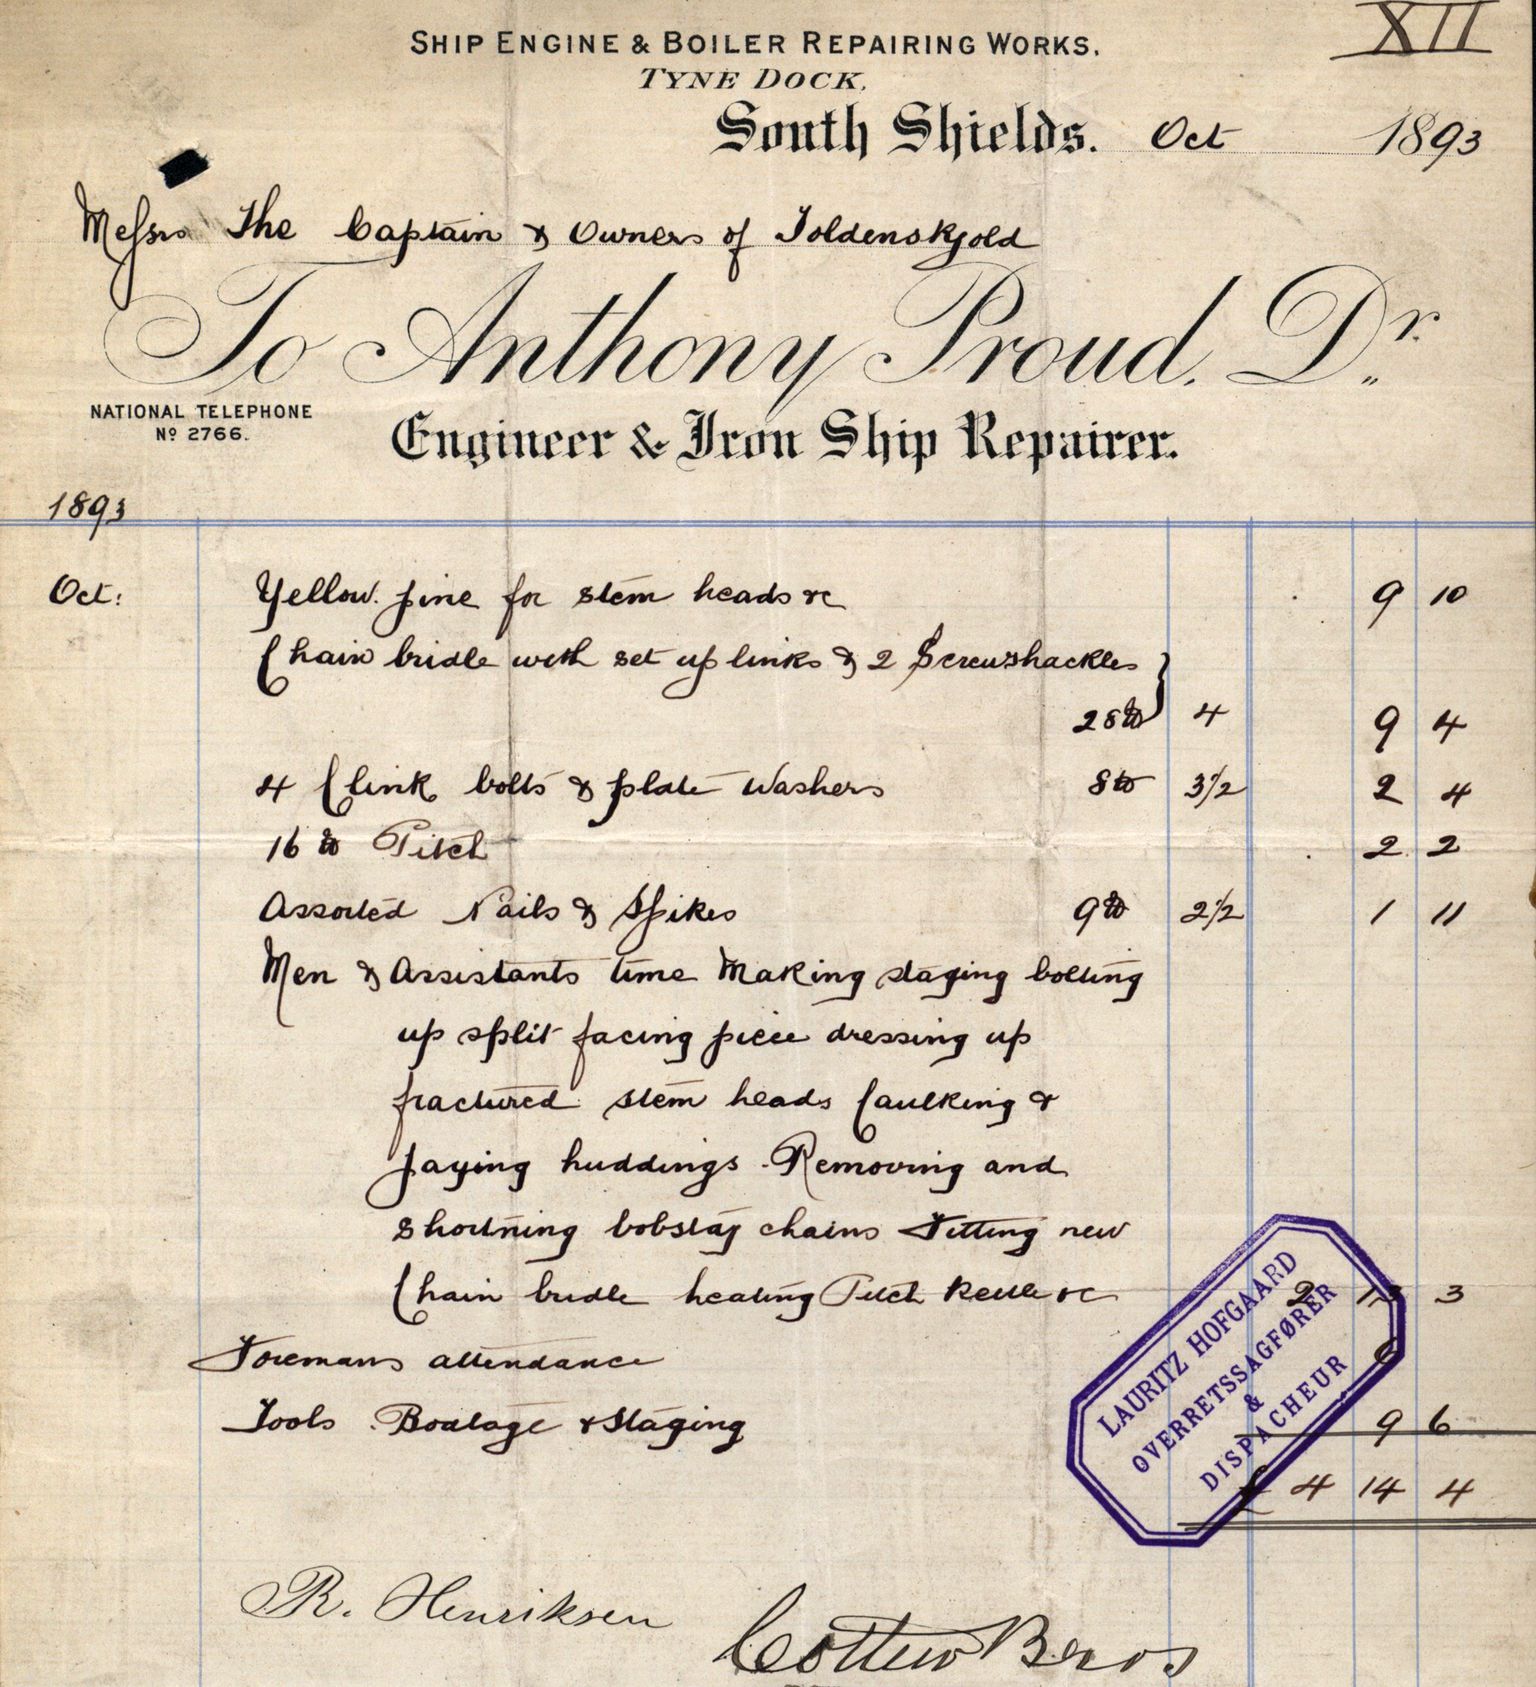 XII
SHIP ENGINE & BOILER REPAIRING WORKS.
TYNE DOCK.
South Shields. Oct 1893
Messrs The Captain & Owners of Toldenskjold
To Anthony Proud. Dr.
NATIONAL TELEPHONE
No 2766.
Engineer & Iron Ship Repairer.
1893
Oct: Yellow pine for stem heads &c 9 10
Chain bridle with set up links & 2 Screwshackles
28 lb 4 9 4
4 Clink bolts & plate washers 8 lb 3 1/2 2 4
16 lb Pitch 2 2
Assorted Nails & Spikes 9 lb 2 1/2 1 11
Men & Assistants time Making staging bolting
up split facing piece dressing up
fractured stem heads Caulking &
paying huddings Removing and
shortning bobstay chains Fitting new
Chain bridle heating Pitch Kettle &c 2 13 3
Foremans attendance 6
Tools Boatage & Staging 9 6
£ 4 14 4
LAURITZ HOFGAARD
OVERRETSSAGFØRER
&
DISPACHEUR
R. Henriksen
Bros